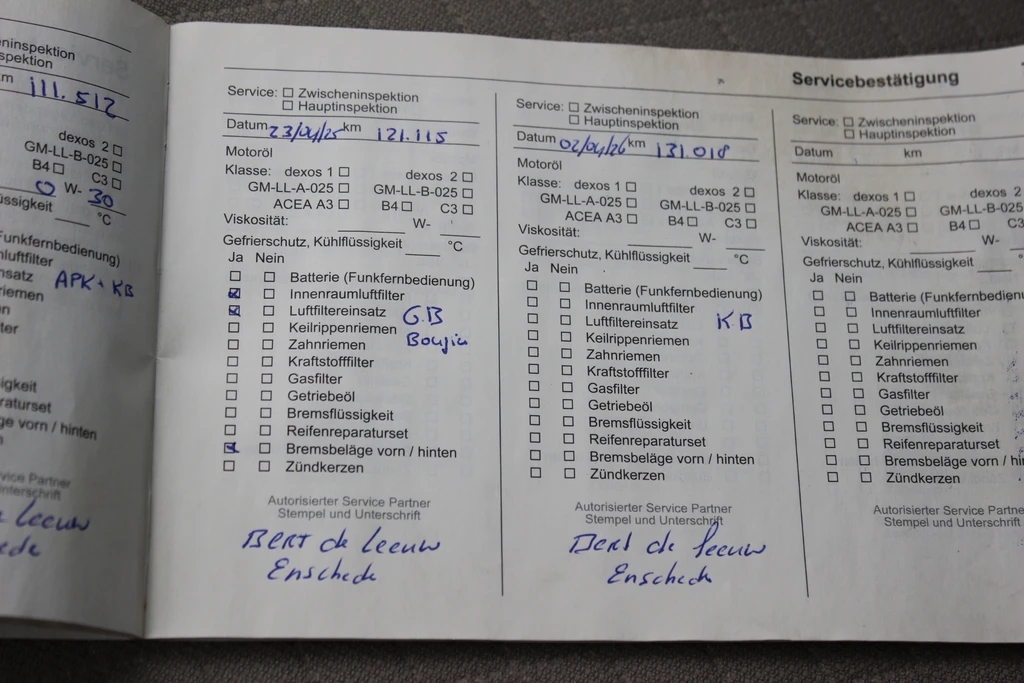 ninspektion
spektion
km 111.512
dexos 2 ☐
GM-LL-B-025 ☐
B4 ☐ C3 ☐
0 W- 30
üssigkeit ____ °C
Funkfernbedienung)
mluftfilter
nsatz APK + KB
riemen
n
ter
igkeit
raturset
ge vorn / hinten
n
vice Partner
Unterschrift
Leeuw
ede
Service: ☐ Zwischeninspektion
☐ Hauptinspektion
Datum 23/04/25 km 121.115
Motoröl
Klasse: dexos 1 ☐ dexos 2 ☐
GM-LL-A-025 ☐ GM-LL-B-025 ☐
ACEA A3 ☐ B4 ☐ C3 ☐
Viskosität: ____ W- ____
Gefrierschutz, Kühlflüssigkeit ____ °C
Ja Nein
☐ ☐ Batterie (Funkfernbedienung)
☒ ☐ Innenraumluftfilter
☒ ☐ Luftfiltereinsatz G.B
☐ ☐ Keilrippenriemen Bougie
☐ ☐ Zahnriemen
☐ ☐ Kraftstofffilter
☐ ☐ Gasfilter
☐ ☐ Getriebeöl
☐ ☐ Bremsflüssigkeit
☐ ☐ Reifenreparaturset
☒ ☐ Bremsbeläge vorn / hinten
☐ ☐ Zündkerzen
Autorisierter Service Partner
Stempel und Unterschrift
Bert de Leeuw
Enschede
Service: ☐ Zwischeninspektion
☐ Hauptinspektion
Datum 02/04/26 km 131.018
Motoröl
Klasse: dexos 1 ☐ dexos 2 ☐
GM-LL-A-025 ☐ GM-LL-B-025 ☐
ACEA A3 ☐ B4 ☐ C3 ☐
Viskosität: ____ W- ____
Gefrierschutz, Kühlflüssigkeit ____ °C
Ja Nein
☐ ☐ Batterie (Funkfernbedienung)
☐ ☐ Innenraumluftfilter
☐ ☐ Luftfiltereinsatz KB
☐ ☐ Keilrippenriemen
☐ ☐ Zahnriemen
☐ ☐ Kraftstofffilter
☐ ☐ Gasfilter
☐ ☐ Getriebeöl
☐ ☐ Bremsflüssigkeit
☐ ☐ Reifenreparaturset
☐ ☐ Bremsbeläge vorn / hinten
☐ ☐ Zündkerzen
Autorisierter Service Partner
Stempel und Unterschrift
Bert de Leeuw
Enschede
Servicebestätigung
Service: ☐ Zwischeninspektion
☐ Hauptinspektion
Datum km
Motoröl
Klasse: dexos 1 ☐ dexos 2
GM-LL-A-025 ☐ GM-LL-B-025
ACEA A3 ☐ B4 ☐ C3
Viskosität: ____ W-
Gefrierschutz, Kühlflüssigkeit ____
Ja Nein
☐ ☐ Batterie (Funkfernbedienun
☐ ☐ Innenraumluftfilter
☐ ☐ Luftfiltereinsatz
☐ ☐ Keilrippenriemen
☐ ☐ Zahnriemen
☐ ☐ Kraftstofffilter
☐ ☐ Gasfilter
☐ ☐ Getriebeöl
☐ ☐ Bremsflüssigkeit
☐ ☐ Reifenreparaturset
☐ ☐ Bremsbeläge vorn / hin
☐ ☐ Zündkerzen
Autorisierter Service Partn
Stempel und Unterschrift